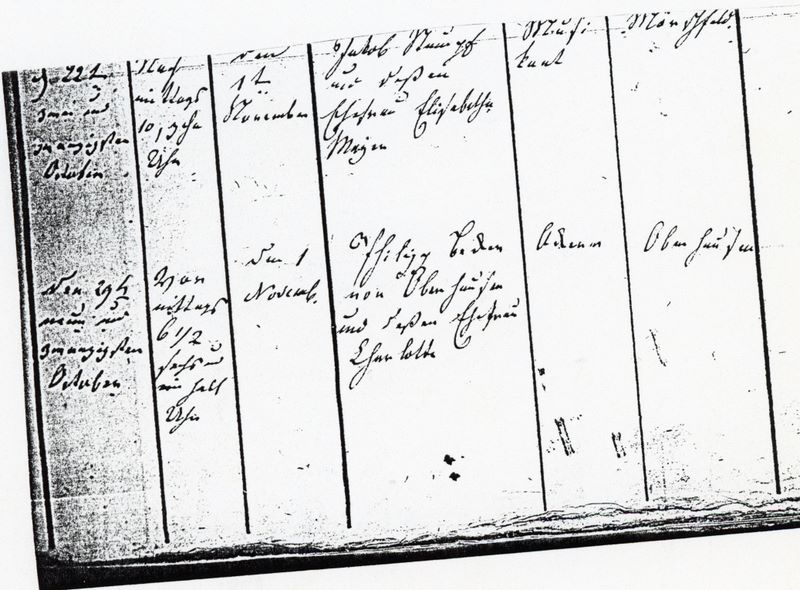 d. 22t
zwei und
zwanzigsten
October
Nach
mittags
10, zehn
Uhr
den
1t
November
Jakob Stumpf
und dessen
Ehefrau Elisabetha
Musi
kant
Mörsfeld
den 29t
neun und
zwanzigsten
October
Vor
mittags
6 1/2
sechs u
ein halb
Uhr
den 1
Novemb.
Philipp
von Oberhausen
und dessen Ehefrau
Charlotte
Ackerer
Oberhausen